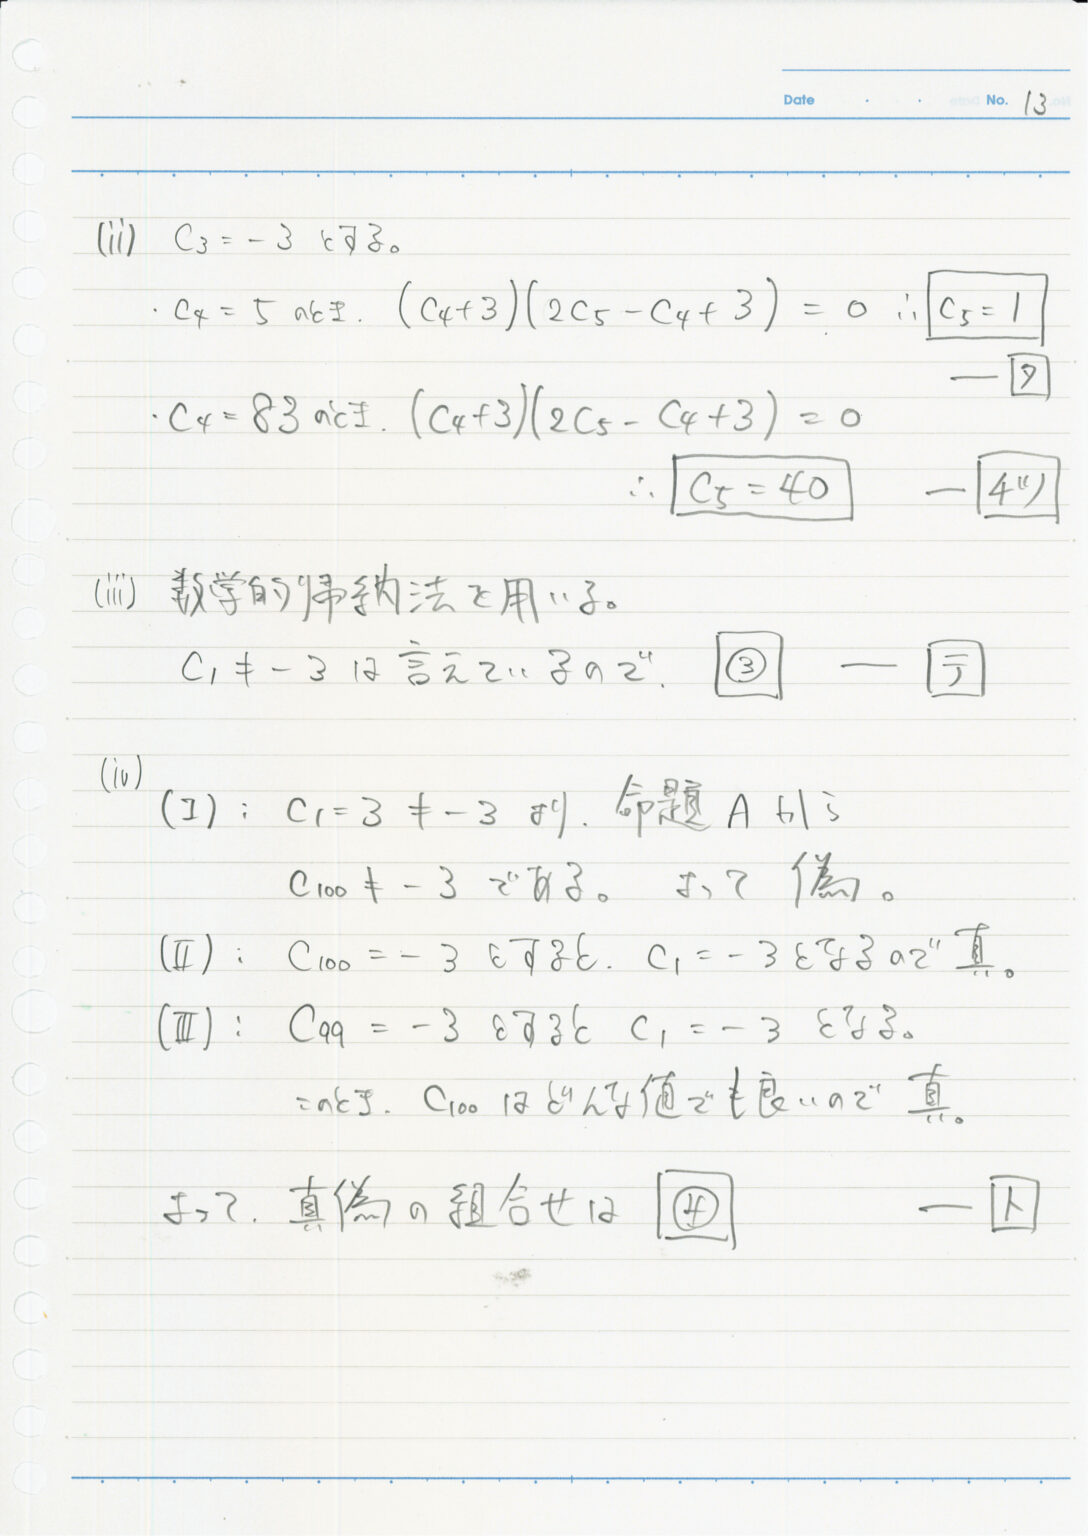 Date ・ ・ No. 13
(ii) C₃ = -3 とする。
・C₄ = 5 のとき. (C₄+3)(2C₅-C₄+3) = 0 ∴ C₅ = 1
― タ
・C₄ = 83 のとき. (C₄+3)(2C₅-C₄+3) = 0
∴ C₅ = 40 ― チツ
(iii) 数学的帰納法を用いる。
C₁ ≠ -3 は言えているので. ③ ― テ
(iv)
(Ⅰ): C₁ = 3 ≠ -3 より. 命題 A から
C₁₀₀ ≠ -3 である。 よって 偽。
(Ⅱ): C₁₀₀ = -3 とすると. C₁ = -3 となるので 真。
(Ⅲ): C₉₉ = -3 とすると C₁ = -3 となる。
このとき. C₁₀₀ はどんな値でも良いので 真。
よって. 真偽の組合せは ④ ― ト